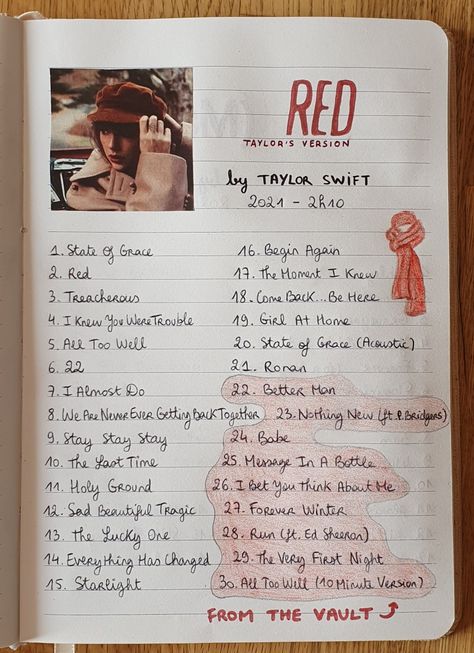 RED
TAYLOR'S VERSION
by TAYLOR SWIFT
2021 - 2h10
1. State Of Grace
2. Red
3. Treacherous
4. I Knew You Were Trouble
5. All Too Well
6. 22
7. I Almost Do
8. We Are Never Ever Getting Back Together
9. Stay Stay Stay
10. The Last Time
11. Holy Ground
12. Sad Beautiful Tragic
13. The Lucky One
14. Everything Has Changed
15. Starlight
16. Begin Again
17. The Moment I Knew
18. Come Back...Be Here
19. Girl At Home
20. State of Grace (Acoustic)
21. Ronan
22. Better Man
23. Nothing New (ft. P. Bridgers)
24. Babe
25. Message In A Bottle
26. I Bet You Think About Me
27. Forever Winter
28. Run (ft. Ed Sheeran)
29. The Very First Night
30. All Too Well (10 Minute Version)
FROM THE VAULT